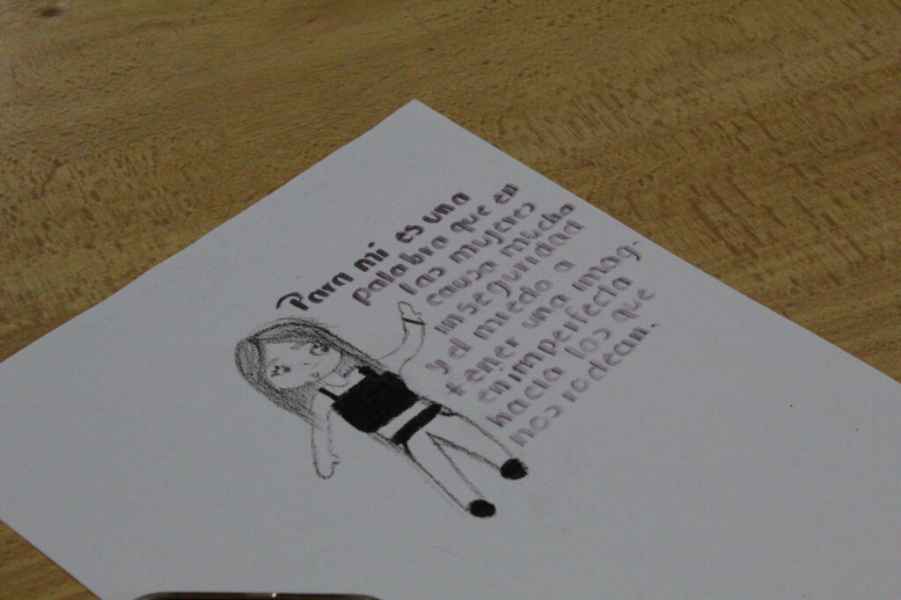 Para mí es una
palabra que en
las mujeres
causa mucha
inseguridad
y el miedo a
tener una imag-
en imperfecta
hacia los que
nos rodean.